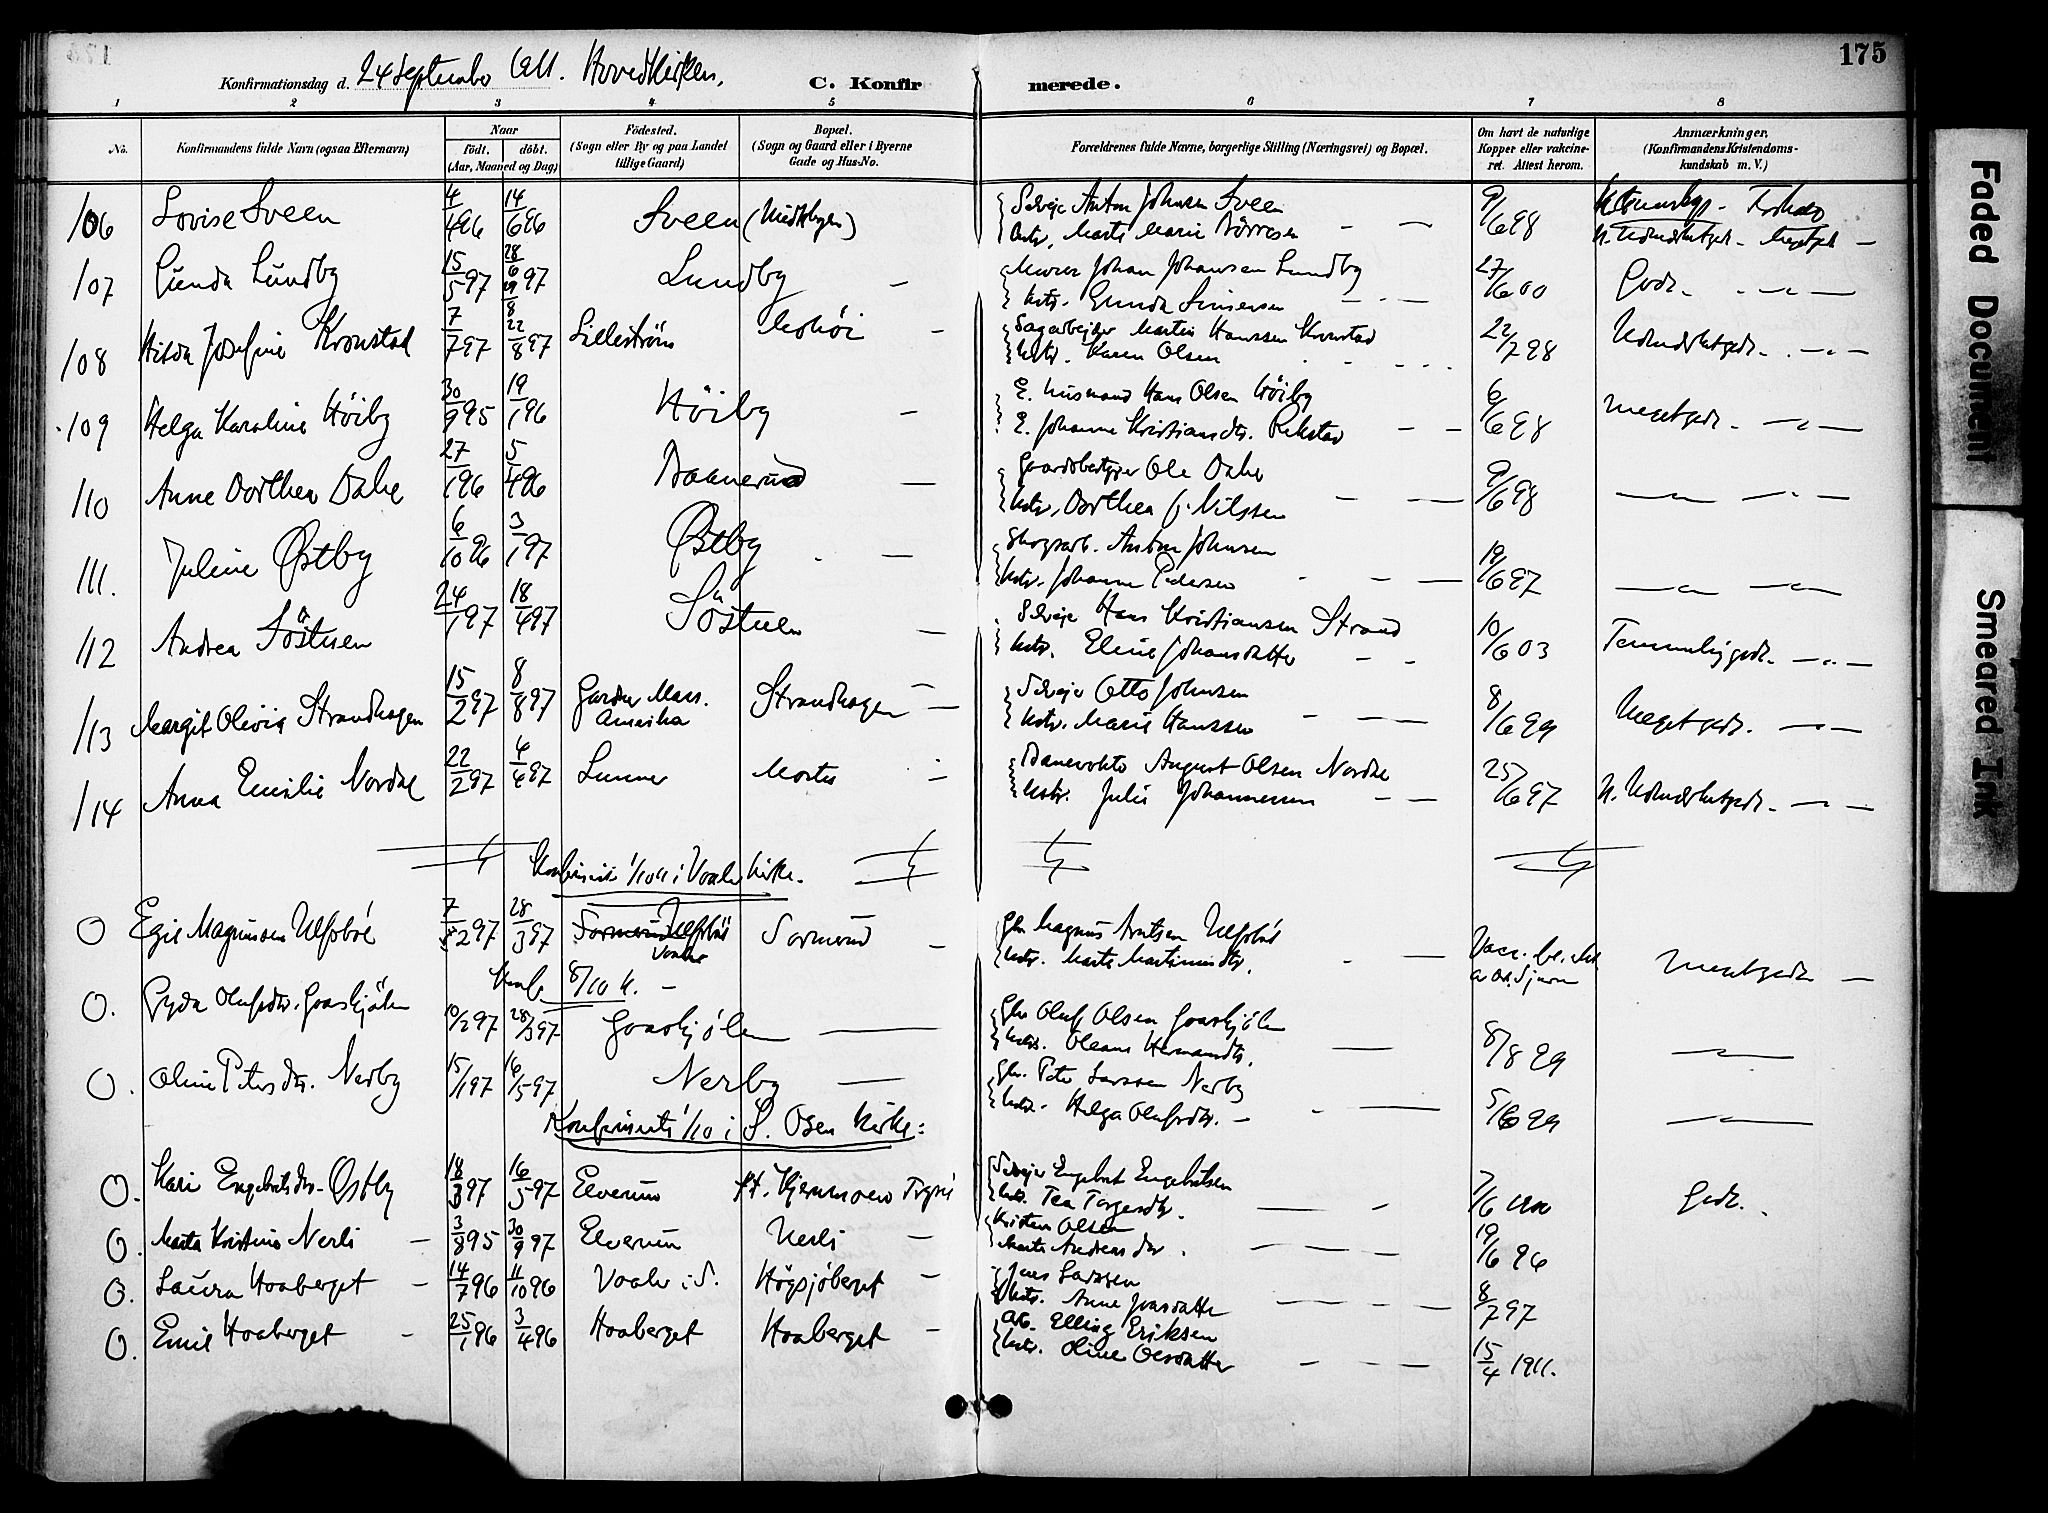 175
Konfirmationsdag d. 24 September 1911. Hovedkirken. C. Konfirmerede.
1 2 3 4 5 6 7 8
No. Konfirmandens fulde Navn (ogsaa Efternavn) Naar født. døbt. (Aar, Maaned og Dag) Fødested. (Sogn eller By og paa Landet tillige Gaard) Bopæl. (Sogn og Gaard eller i Byerne Gade og Hus-No. Forældrenes fulde Navne, borgerlige Stilling (Næringsvei) og Bopæl. Om havt de naturlige Kopper eller vaccineret. Attest herom. Anmærkninger. (Konfirmandens Kristendomskundskab m. V.)
106 Lovise Sveen 4/4 96 14/6 96 Sveen (Midtbygen) Selveje Anton Johnsen Sveen
Marte Marie Tørresen 9/6 98
107 Gunda Lundby 15/5 97 28/6 97 Lundby — Murer Johan Johansen Lundby
Hstr. Gunda Simensen 27/6 00 Godt.
108 Hilda Josefine Kronstad 7/7 97 22/8 97 Lillestrøm Mohøi — Sagarbejder Martin Hanssen Kronstad
Hstr. Karen Olsen 22/7 98 Udmerketgodt.
109 Helga Karoline Høiby 30/9 95 19/1 96 Høiby — E. Husmand Hans Olsen Høiby
E. Johanne Kristiansdtr. Rekstad 6/6 98 Megetgodt.
110 Anne Dorthea Dahl 27/1 96 5/4 96 — Gaardsbestyrer Ole Dahl
Hstr. Dorthea J. Nilssen 9/6 98
111. Juline Østby 6/10 96 3/1 97 Østby — Skogsarb. Anton Johnsen
Hstr. Johanne Pedersen 19/6 97
112 Andrea Søstuen 24/1 97 18/4 97 Søstuen — Selveje Hans Kristiansen Strand
Hstr. Eline Johansdatter 10/6 03 Temmeliggodt.
113 Margit Olivia Strandhagen 15/2 97 8/8 97 Gardner Mass. Amerika Strandhagen — Selveje Otto Johnsen
Hstr. Marie Hanssen 8/6 99 Megetgodt.
114 Anna Emilie Nordal 22/2 97 4/4 97 Lunner Banevokter August Olsen Nordal
Hstr. Julie Johannessen 25/6 97 N. Udmerketgodt.
Konfirmert 1/10 11 i Vaaler Kirke.
O Egil Magnussen Ulfsbøl 7/2 97 28/3 97 Sormerud Ulfsbøl Vaaler Sormerud — Gbr. Magnus Arntsen Ulfsbøl
Hstr. Marte Martinusdtr. Megetgodt
8/10 11.
O. Gyda Olufsdtr. Graaskjølen 10/2 97 28/3 97 Graaskjølen Gbr. Oluf Olsen Graaskjølen
Hstr. Oleane Hermansdtr. 8/8 99
O. Oline Petersdtr. Nerby 15/1 97 16/5 97 Nerby Gbr. Peter Larssen Nerby
Hstr. Helga Olufsdtr. 5/6 99
Konfirmerte 1/10 i S. Osen Kirke:
O. Kari Engebretsdtr. Østby 18/3 97 16/5 97 Elverum Selveje Engebret Engebretsen
Hstr. Tea Torgersdtr. 7/6 Godt.
O. Marta Kristine Nerli 3/8 95 30/9 97 Elverum Nerli — Kristian Olsen
Marte Andreasdtr. 19/6 96
O. Laura Hoaberget 14/7 96 11/10 96 Vaaler i S. Høgsjøberget — Jens Larssen
Hstr. Anne Jonsdatter 8/7 97
O. Emil Hoaberget 25/1 96 3/4 96 Hoaberget Hoaberget — Arb. Elling Eriksen
Hstr. Oline Olesdatter 15/4 1911.
Faded Document
Smeared Ink